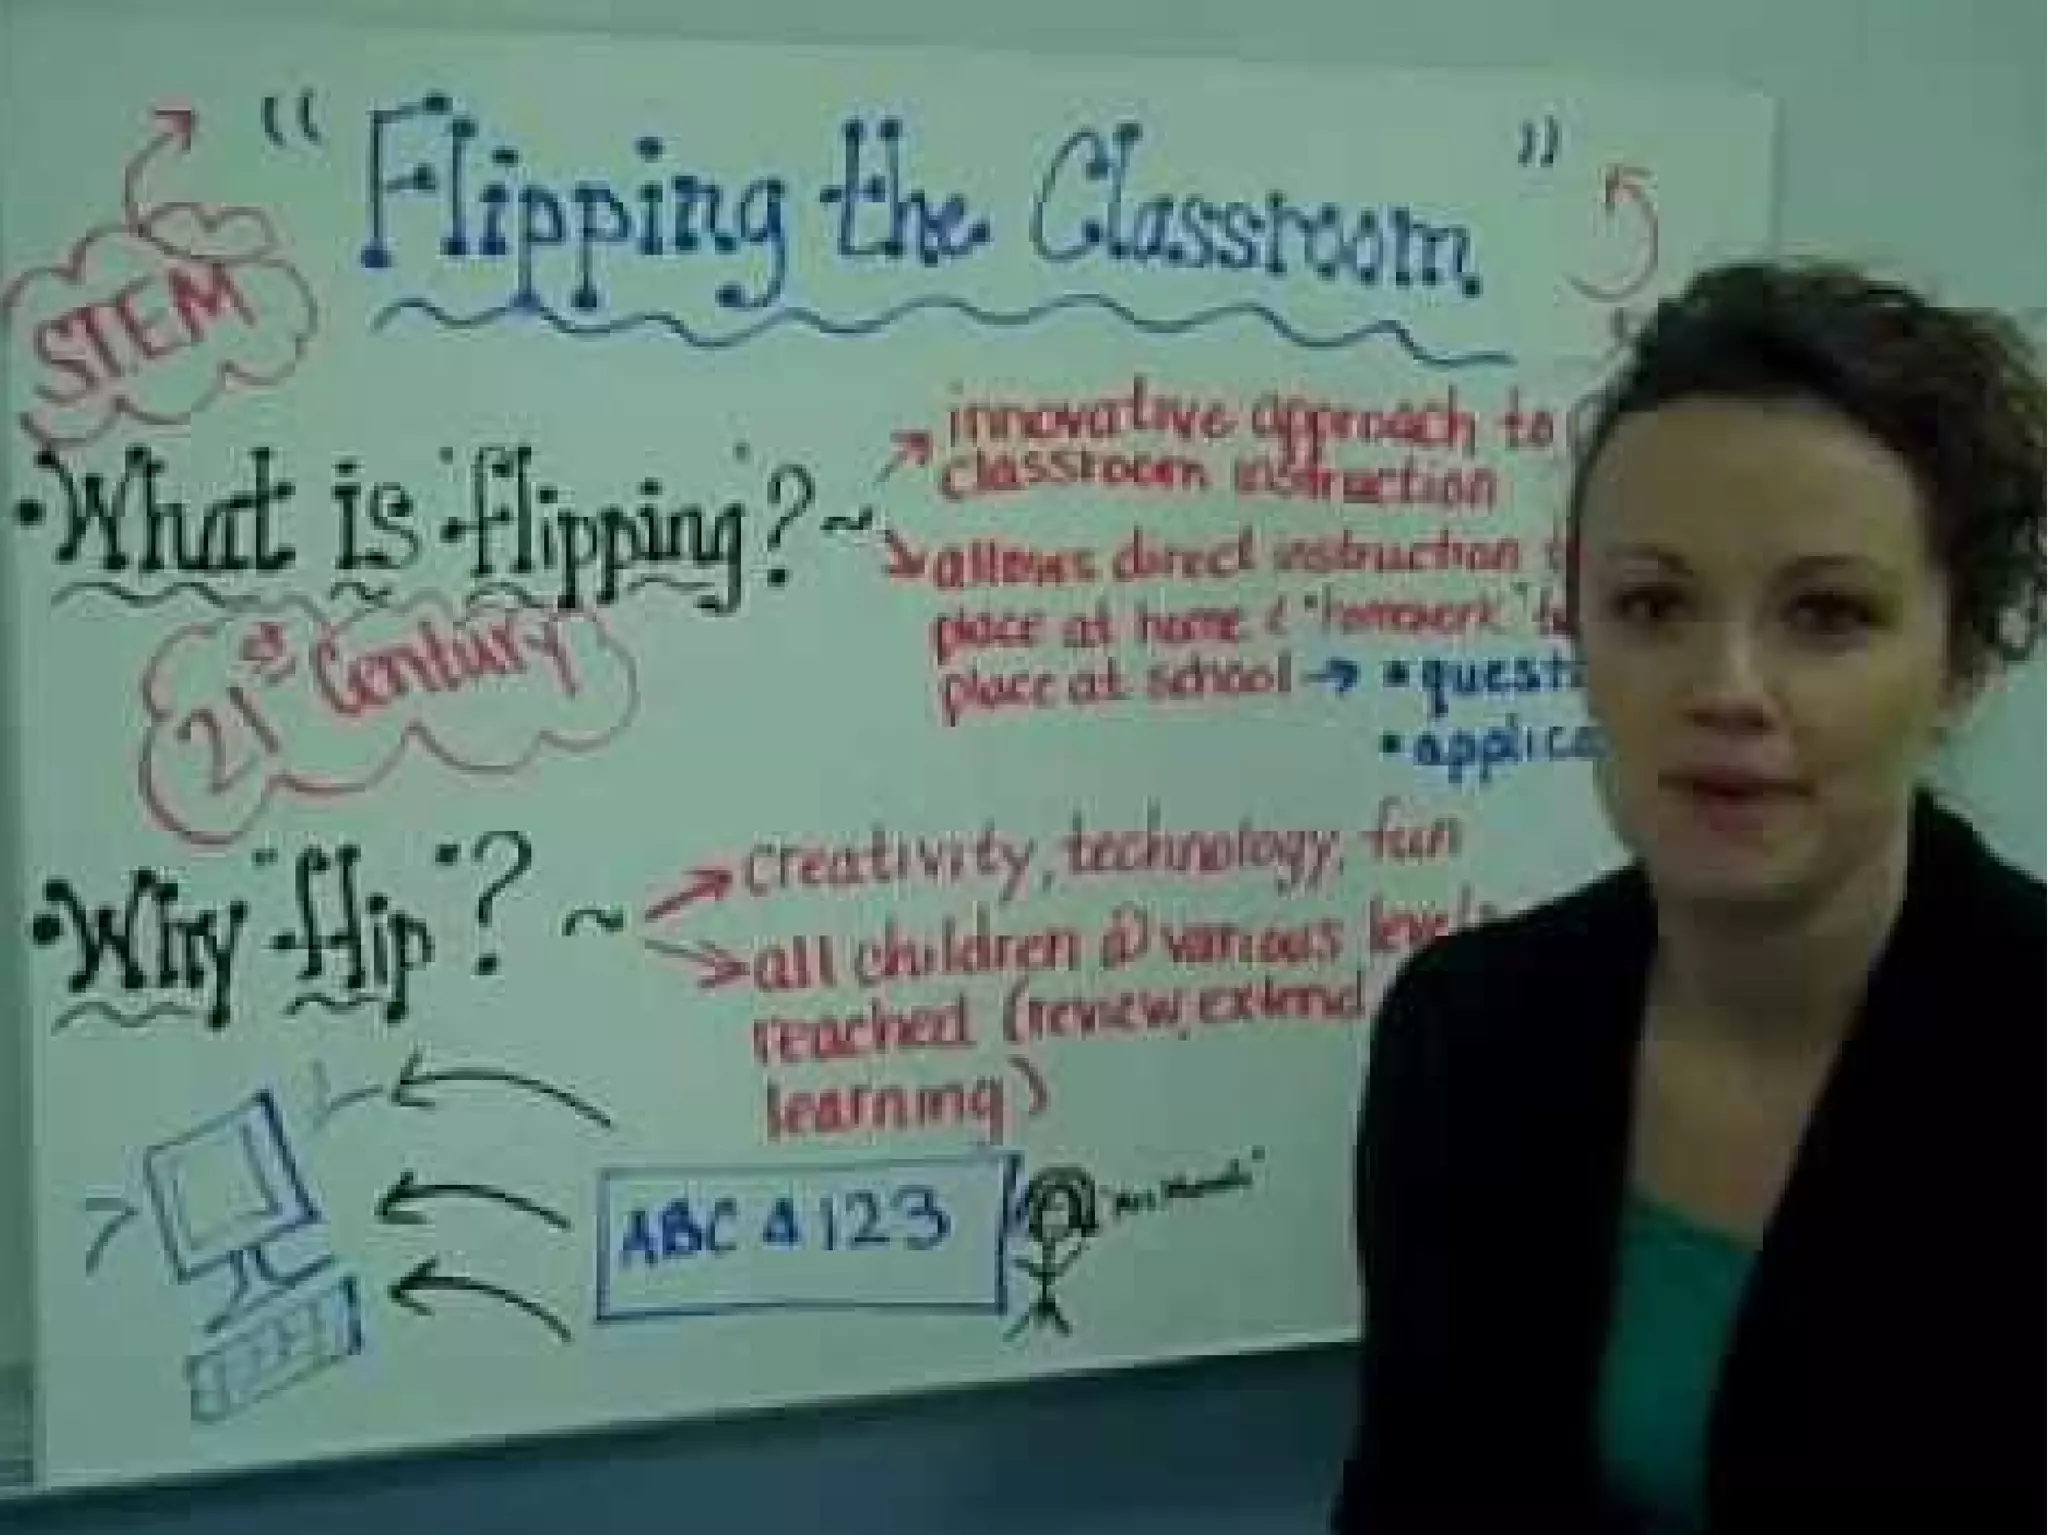 " Flipping the Classroom "
STEM
• What is "flipping"? ~
innovative approach to
classroom instruction
allows direct instruction
place at home & "homework"
place at school → • quest
• applica
21st Century
• Why "flip"? ~
creativity, technology, fun
all children @ various levels
reached (review, extend
learning)
ABC & 123